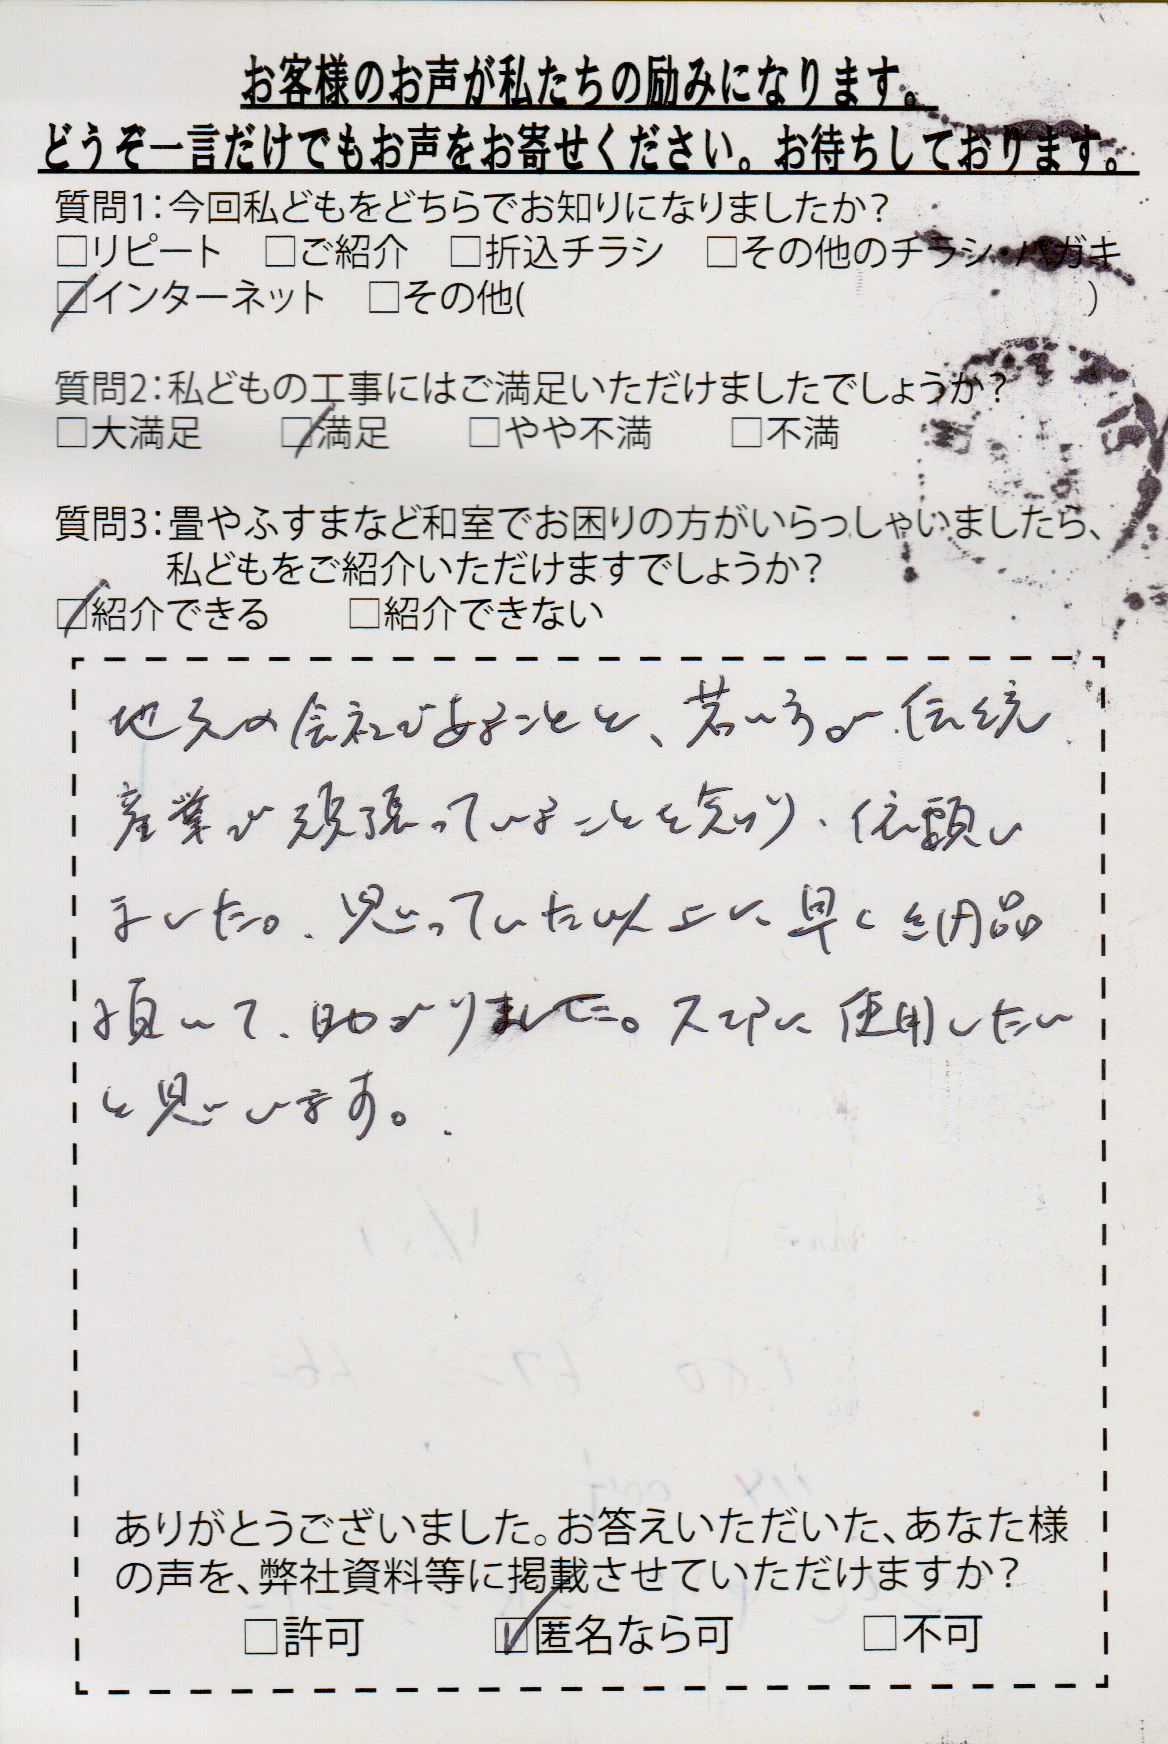 お客様のお声が私たちの励みになります。
どうぞ一言だけでもお声をお寄せください。お待ちしております。
質問1：今回私どもをどちらでお知りになりましたか？
□リピート □ご紹介 □折込チラシ □その他のチラシ・ハガキ
☑インターネット □その他( )
質問2：私どもの工事にはご満足いただけましたでしょうか？
□大満足 ☑満足 □やや不満 □不満
質問3：畳やふすまなど和室でお困りの方がいらっしゃいましたら、
私どもをご紹介いただけますでしょうか？
☑紹介できる □紹介できない
地元の会社であることと、若い方が伝統
産業で頑張っていることを知り、依頼し
ました。思っていた以上に早く納品
頂いて、助かりました。大切に使用したい
と思います。
ありがとうございました。お答えいただいた、あなた様
の声を、弊社資料等に掲載させていただけますか？
□許可 ☑匿名なら可 □不可